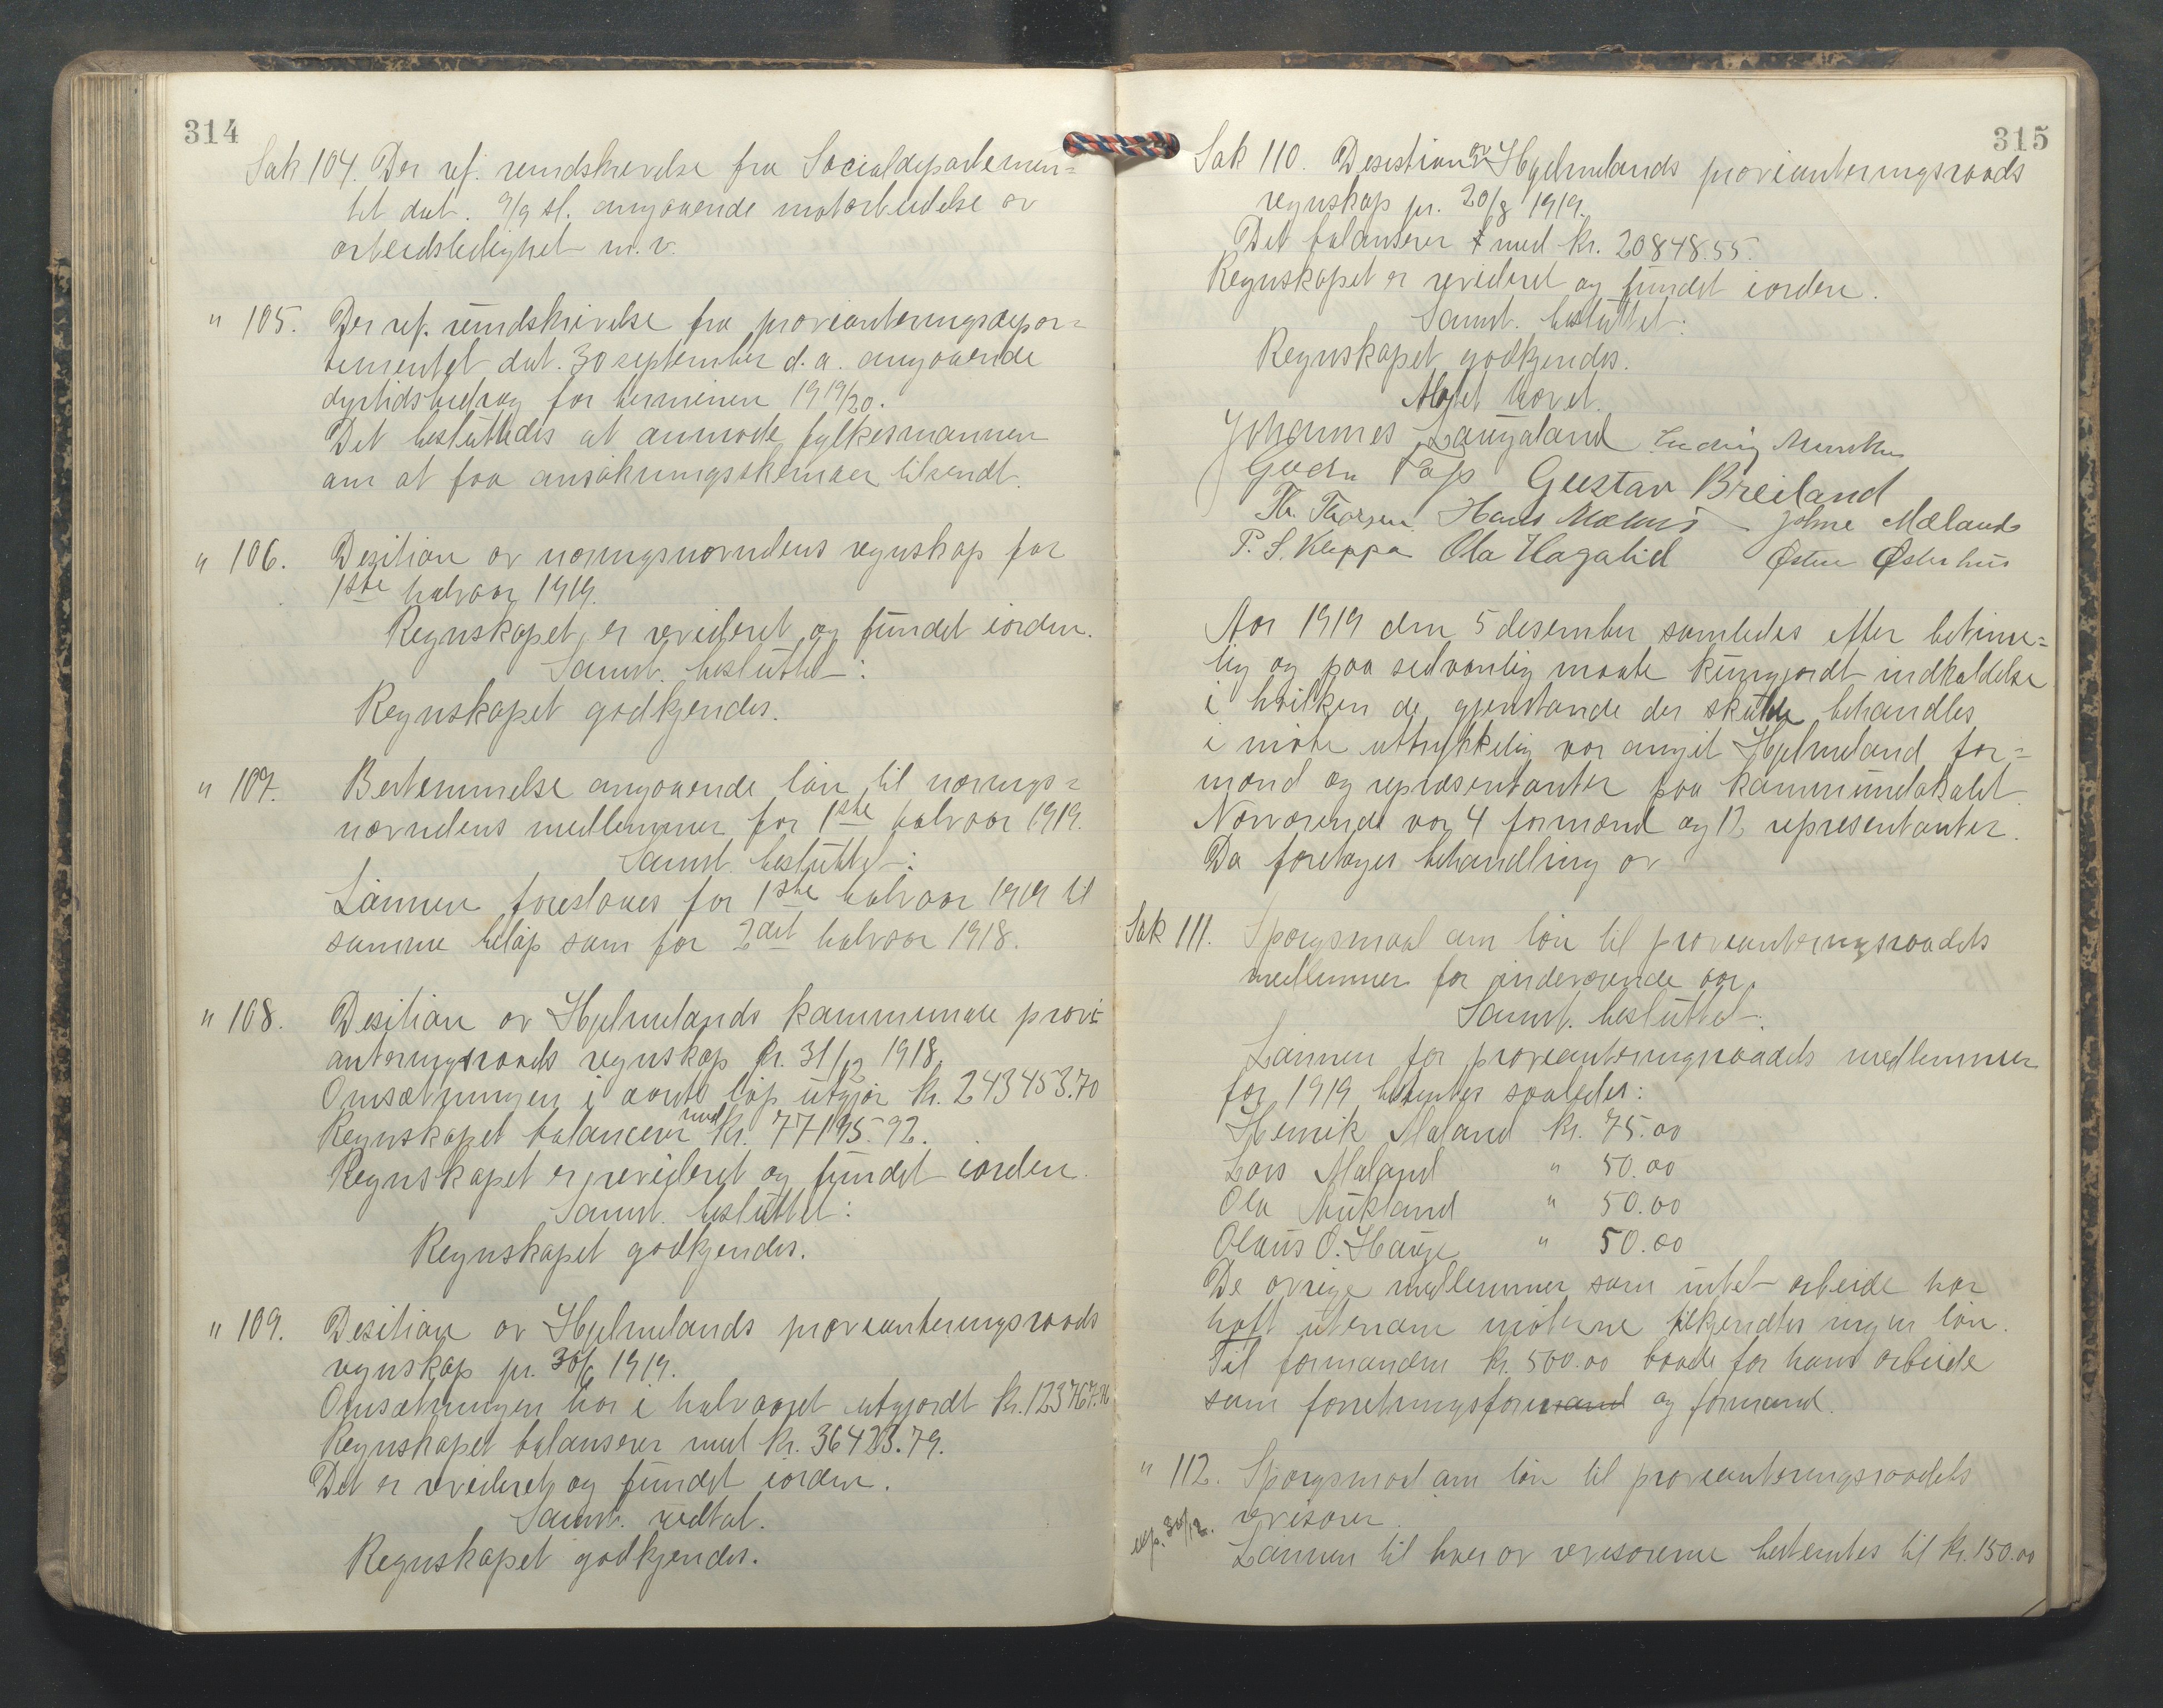 314
Sak 104. Der ref. rundskrivelse fra Socialdepartemen=
tet dat. 9/9 sl. angaaende motarbeidelse av
arbeidsledighet m.v.
" 105. Der ref. rundskrivelse fra provianteringsdepar=
tementet dat. 30 september d.a. angaaende
dyrtidsbidrag for terminen 1919/20.
Det besluttedes at anmode fylkesmannen
om at faa ansøkningsskemaer tilsendt.
" 106. Desition av næringsnevndens regnskap for
1ste halvaar 1919.
Regnskapet er revideret og fundet iorden.
Samst. besluttet:
Regnskapet godkjendes.
" 107. Bestemmelse angaaende løn til nærings=
nævndens medlemmer for 1ste halvaar 1919.
Samst. besluttet:
Lønnen foreslaaes for 1ste halvaar 1919 til
samme beløp som for 2det halvaar 1918.
" 108. Desition av Hjelmelands kommunale provi=
anteringsraads regnskap pr. 31/12 1918.
Omsætningen i aarets løp utgjør kr. 243453.70
Regnskapet balancerer med kr. 77195.92.
Regnskapet er revideret og fundet iorden.
Samst. besluttet:
Regnskapet godkjendes.
" 109. Desition av Hjelmelands provianteringsraads
regnskap pr. 30/6 1919.
Omsætningen har i halvaaret utgjordt kr. 123767.76
Regnskapet balanserer med kr. 36423.79.
Det er revideret og fundet iorden.
Samst. vedtat.
Regnskapet godkjendes.
315
Sak 110. Desistion av Hjelmelands provianteringsraads
regnskap pr. 20/8 1919.
Det balanserer med kr. 20848.55.
Regnskapet er revideret og fundet iorden.
Samst. besluttet:
Regnskapet godkjendes.
Møtet hævet.
Johannes Laugaland Ludvig Munkhus
Gustav Breiland
Th. Thorsen Hans Mælands Johne Mælands
P. S. Kleppa Ola Hagalid Østen Østerhus
Aar 1919 den 5 desember samledes efter betime=
lig og paa sedvanlig maate kungjordt indkaldelse
i hvilken de gjenstande der skulde behandles
i møte uttrykkelig var angit Hjelmeland for=
mænd og repræsentanter paa kommunelokalet.
Nærværende var 4 formænd og 12 representanter.
Da foretages behandling av
Sak 111. Spørgsmaal om løn til provianteringsraadets
medlemmer for inderværende aar.
Samst. besluttet:
Lønnen for provianteringsraadets medlemmer
for 1919 bestemtes saaledes:
Henrik Mæland kr. 75.00
Lars Mæland " 50.00
Ola Aukland " 50.00
Olaus O. Hauge " 50.00
De øvrige medlemmer som intet arbeide har
hatt utenom møterne tilkjendtes ingen løn.
Til formanden kr. 500.00 baade for hans arbeide
som forretningsformand og formand.
" 112. Spørgsmaal om løn til provianteringsraadets
revisorer.
exp. 30/12.
Lønnen til hver av revisorerne bestemtes til kr. 150.00